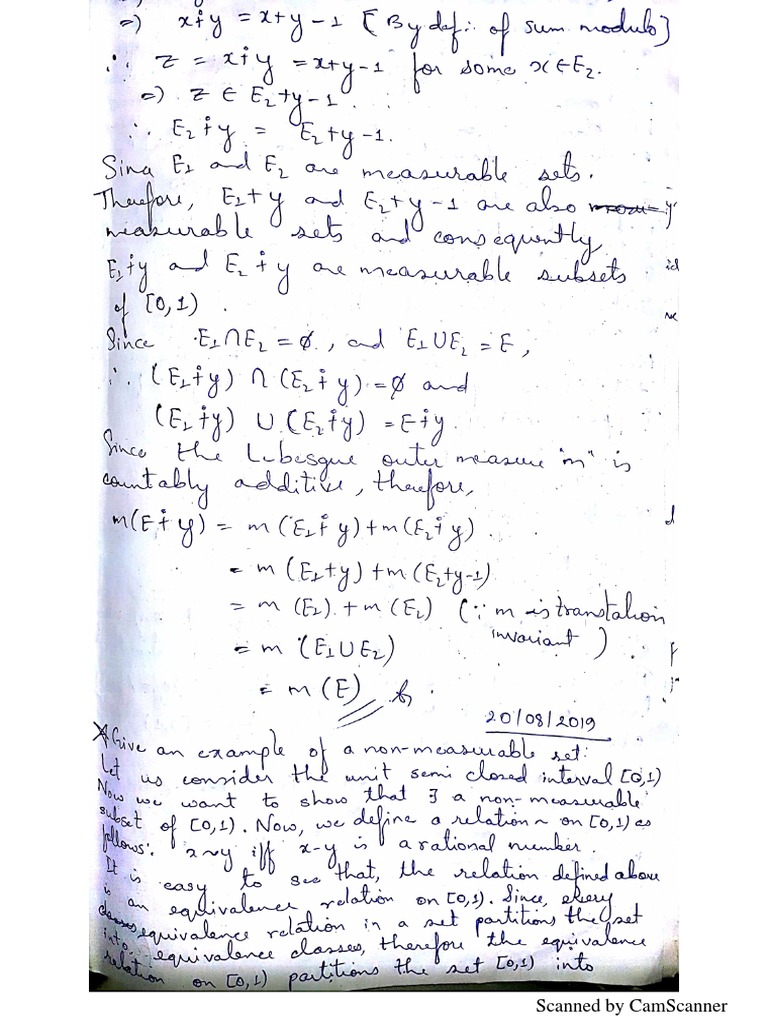 ⇒ x∔y = x+y-1 [By defi. of sum modulo]
∴ z = x∔y = x+y-1 for some x∈E₂.
⇒) z ∈ E₂+y-1.
∴ E₂∔y = E₂+y-1.
Since E₁ and E₂ are measurable sets.
Therefore, E₁+y and E₂+y-1 are also
measurable sets and consequently
E₁∔y and E₂∔y are measurable subsets
of [0,1).
Since E₁∩E₂=ø, and E₁∪E₂=E,
∴ (E₁∔y) ∩ (E₂∔y)=ø and
(E₁∔y) ∪ (E₂∔y) = E∔y.
Since the Lebesgue outer measure "m" is
countably additive, therefore,
m(E∔y) = m(E₁∔y)+m(E₂∔y).
= m(E₁+y)+m(E₂+y-1)
= m(E₁)+m(E₂) (∵ m is translation
invariant)
= m(E₁∪E₂)
= m(E)
20/08/2019
Give an example of a non-measurable set:
Let us consider the unit semi closed interval [0,1)
Now we want to show that ∃ a non-measurable
subset of [0,1). Now, we define a relation ~ on [0,1) as
follows: x~y iff x-y is a rational number.
It is easy to see that, the relation defined above
is an equivalence relation on [0,1). Since, every
equivalence relation in a set partitions the set
into equivalence classes, therefore the equivalence
relation on [0,1) partitions the set [0,1) into
Scanned by CamScanner